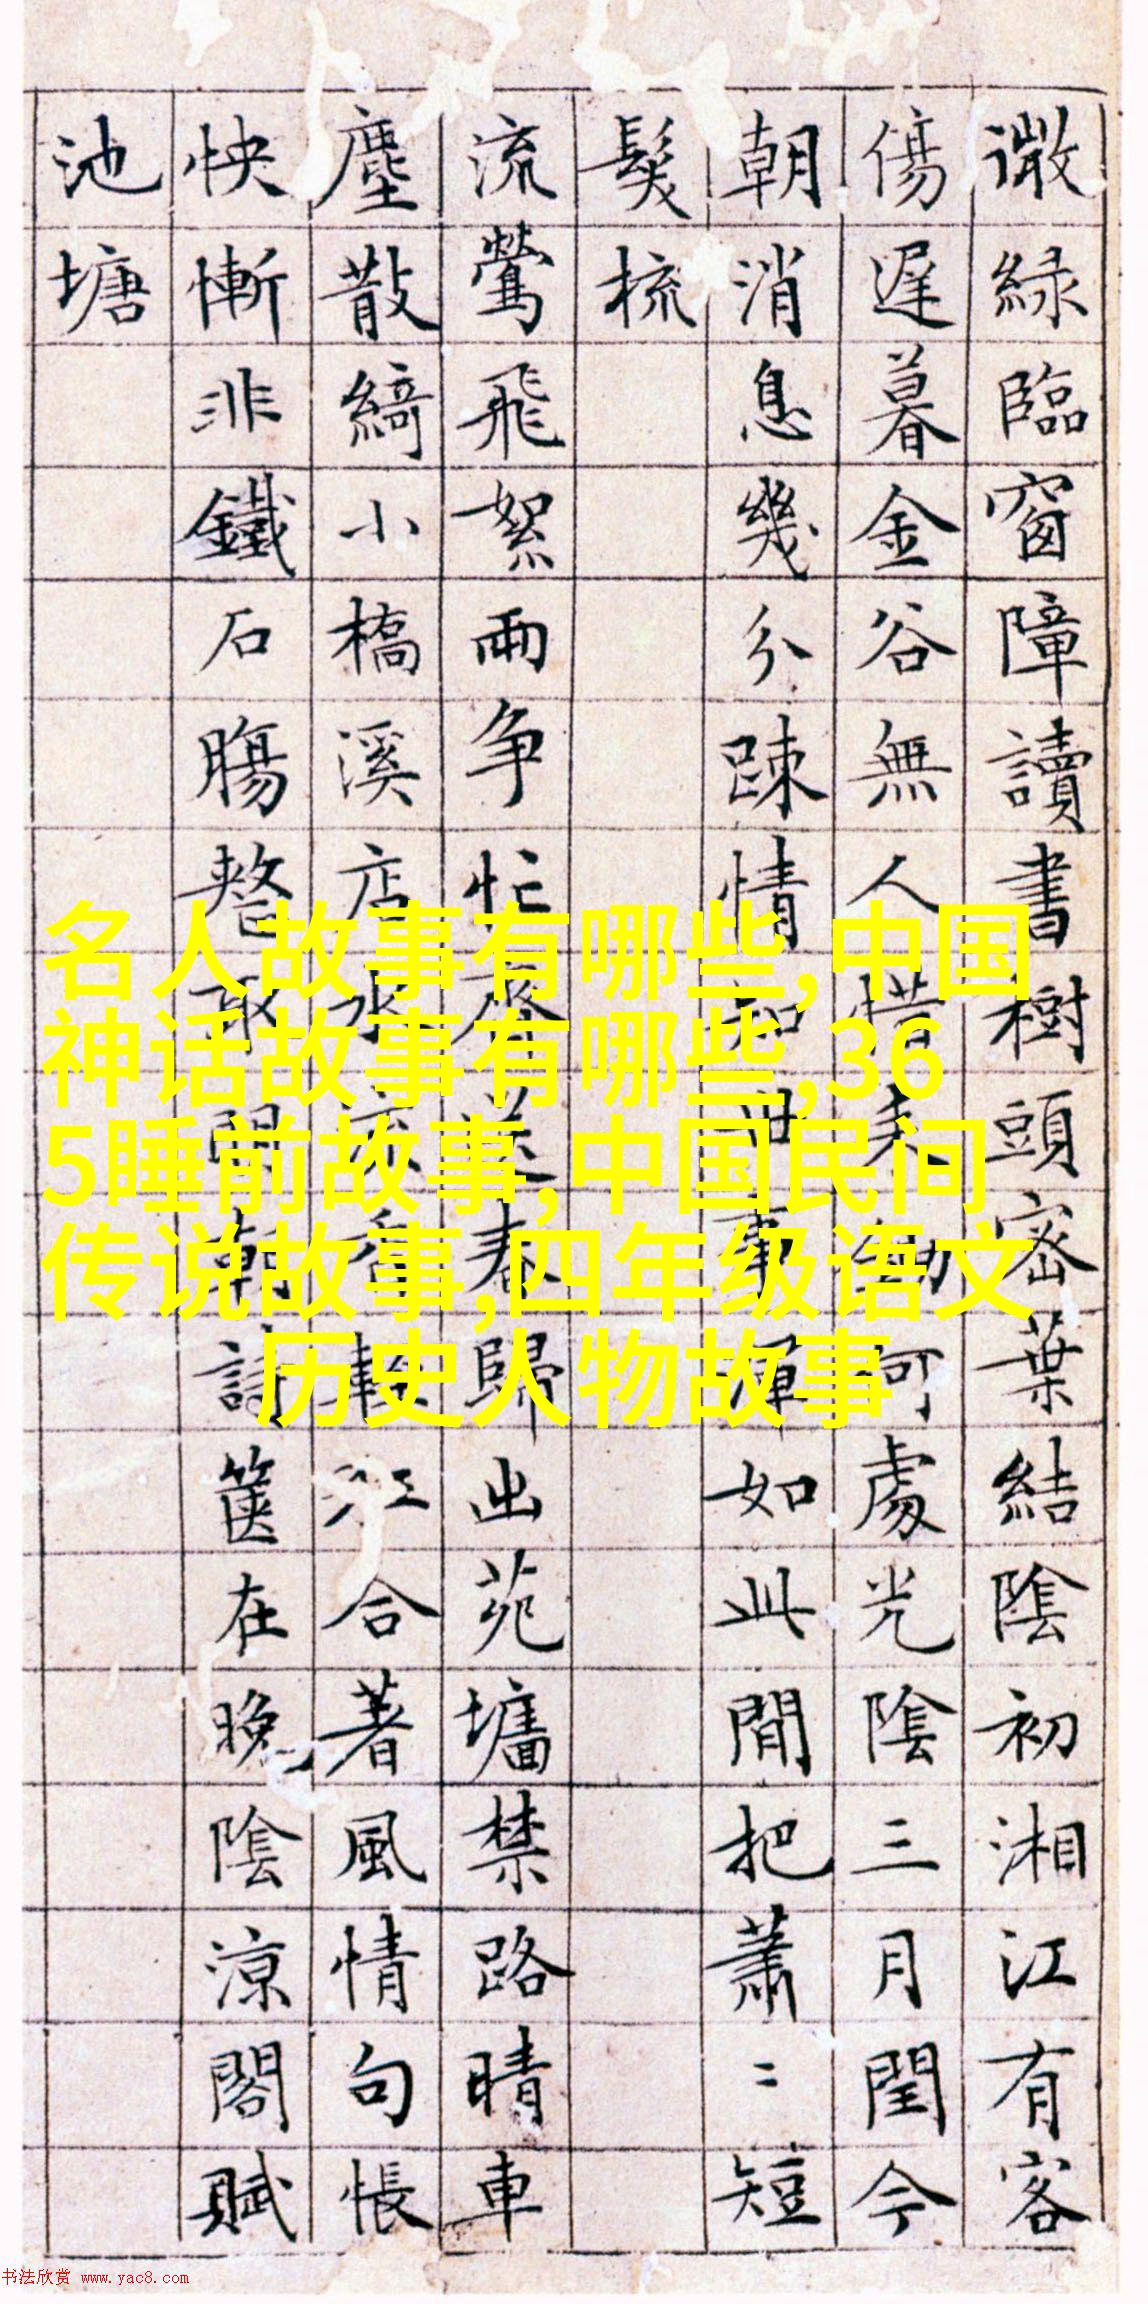 微緑臨窗障讀書樹頭密葉結陰初湘江有客
傷遲暮金谷無人惜耒勸何處光陰三月閏今
朝消息幾分踈情知世事渾如此閒把蕭〻短
髮梳
流鶯飛絮兩争忙飛送春歸出苑墻禁路晴車
塵散綺小橋溪店水流香軟江合著風情句悵
怏慚非鐵石腸整取閒朝詩篋在晚陰凉閣賦
池塘
名人故事有哪些,中国
神话故事有哪些,36
5睡前故事,中国民间
传说故事,四年级语文
历史人物故事
书法欣赏 www.yac8.com